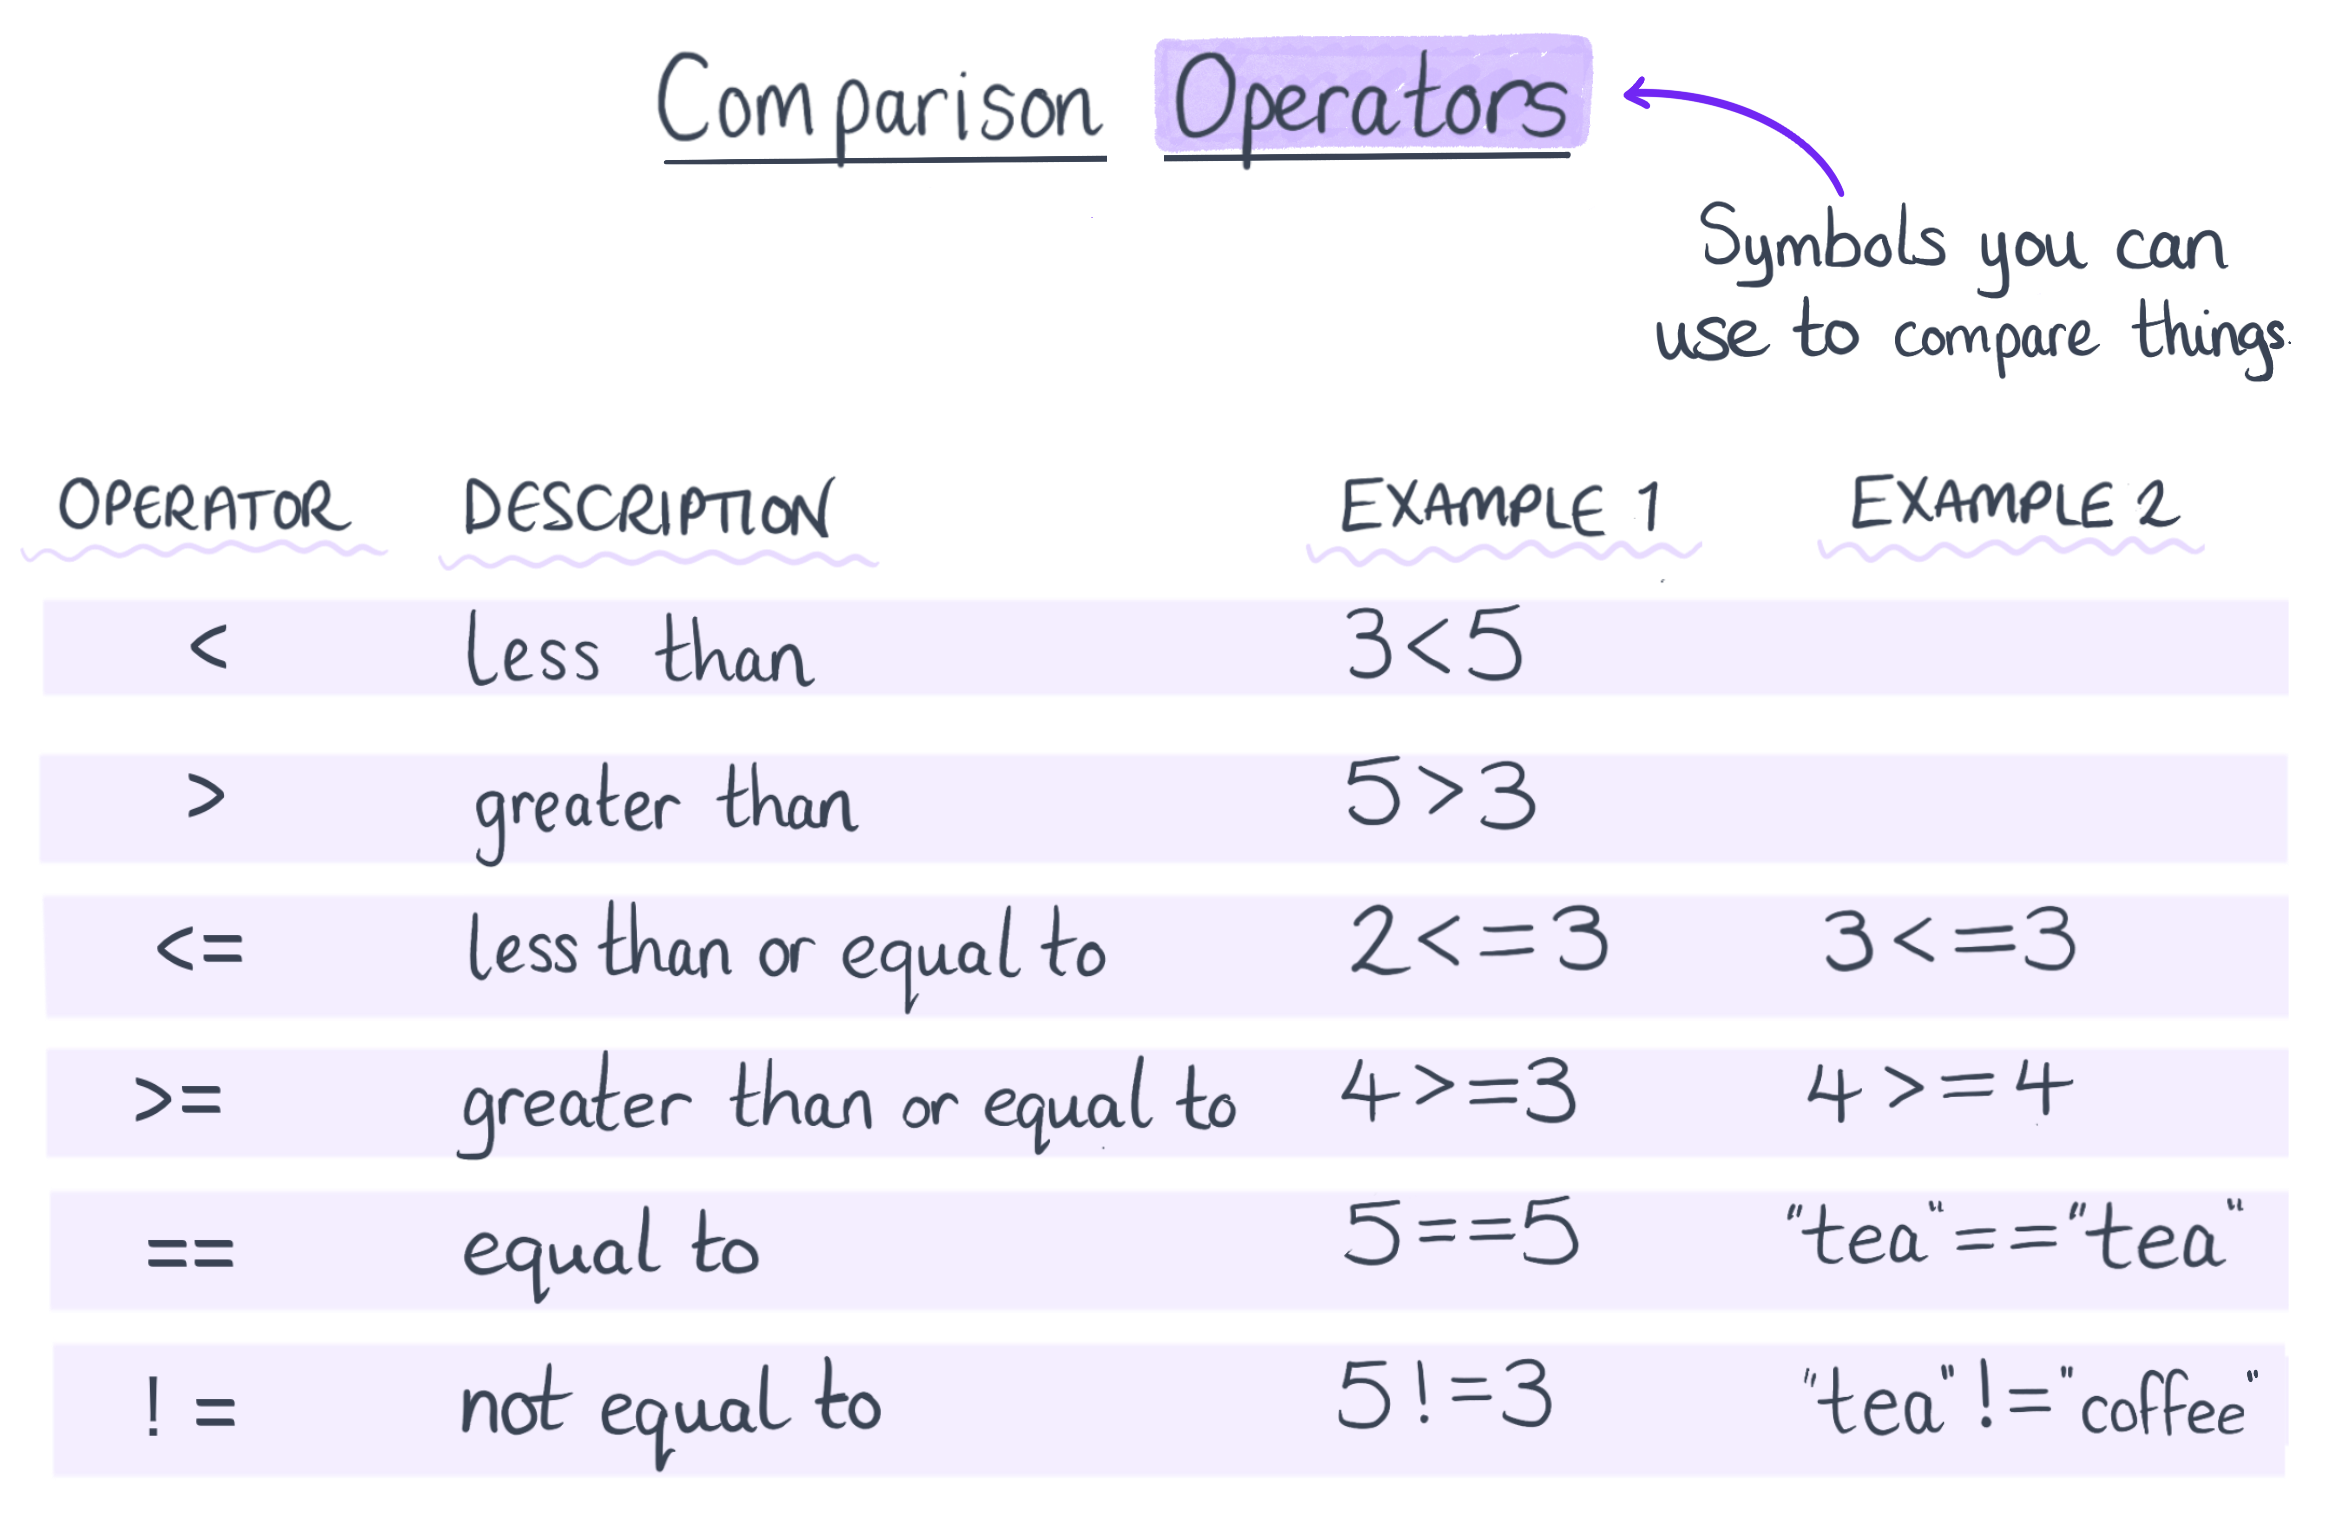 Comparison Operators
Symbols you can
use to compare things.
OPERATOR DESCRIPTION EXAMPLE 1 EXAMPLE 2
< less than 3<5
> greater than 5>3
<= less than or equal to 2<=3 3<=3
>= greater than or equal to 4>=3 4>=4
== equal to 5==5 "tea"=="tea"
!= not equal to 5!=3 "tea"!="coffee"